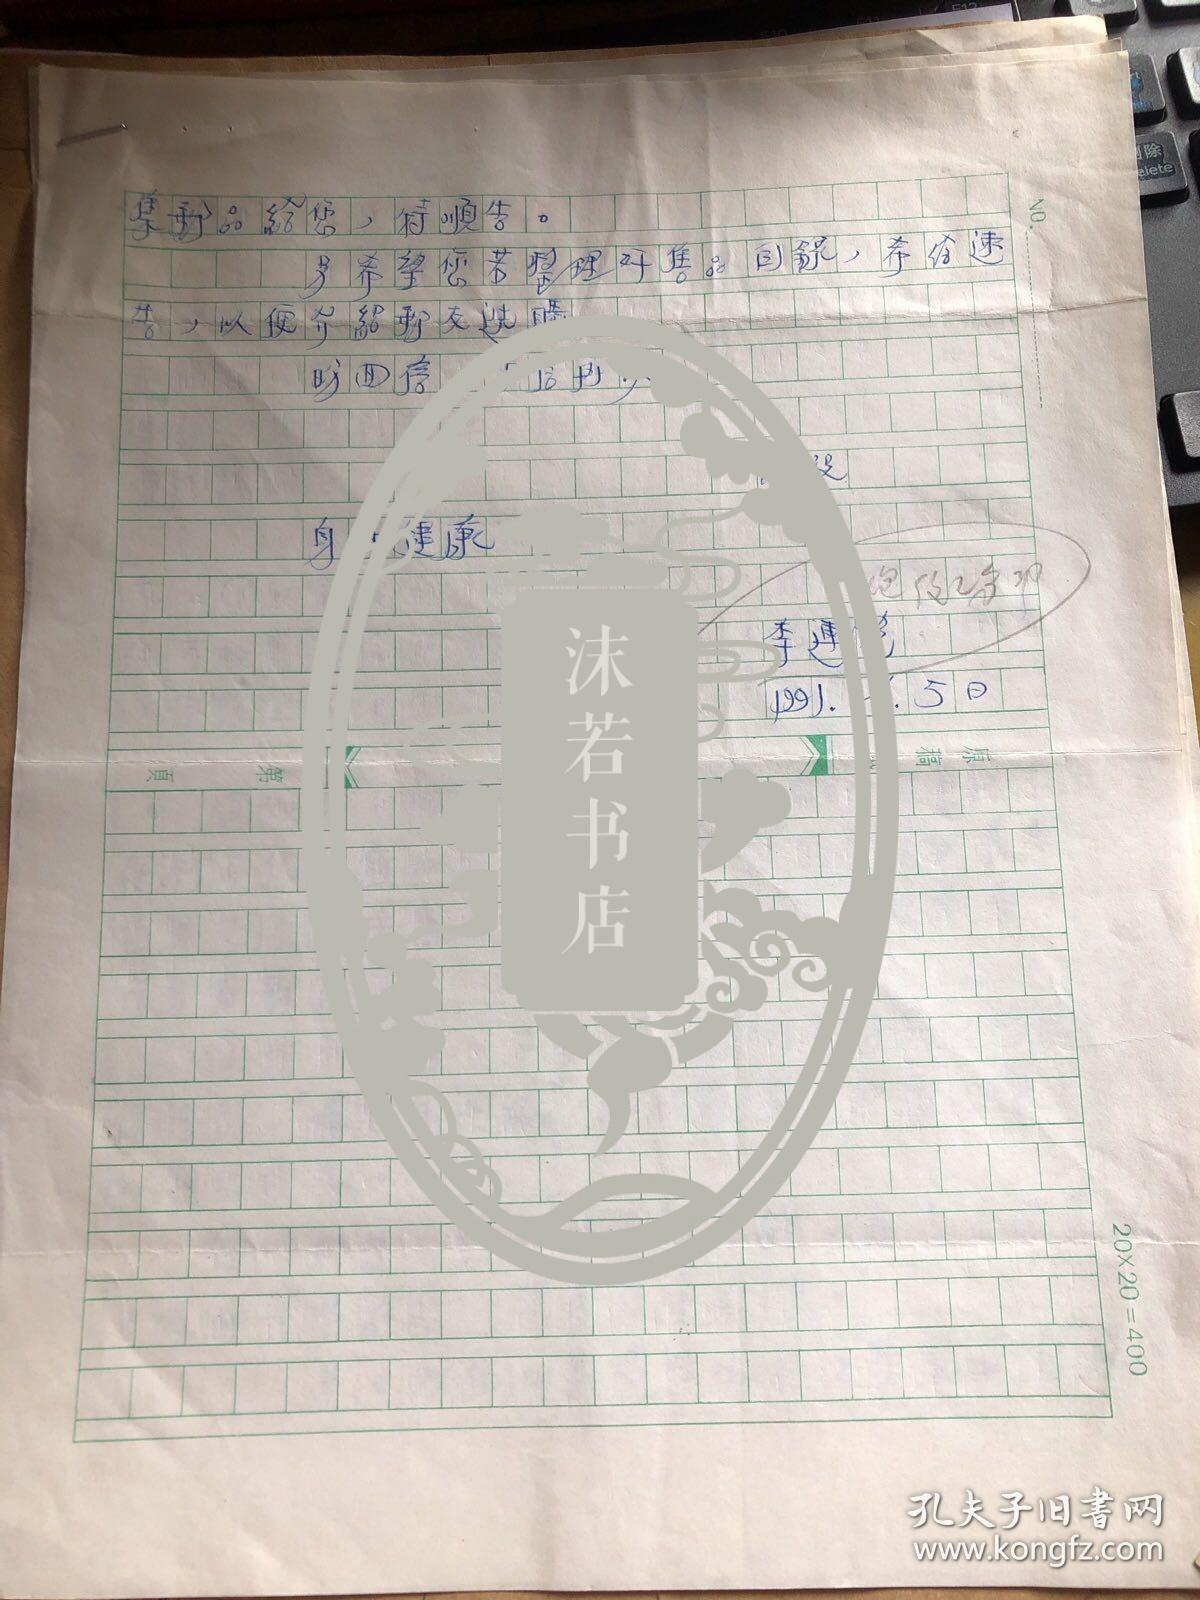 集郵品給您，特順告。
另希望您若整理好售品目錄，希台速
告，以便介紹郵友选購
盼回信
身 健康
李連
1991. .5日
NO.
原稿
第 頁
20×20=400
沫若书店
孔夫子旧書网
www.kongfz.com
删除
Delete
F12